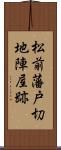 松前藩戸切
地陣屋跡